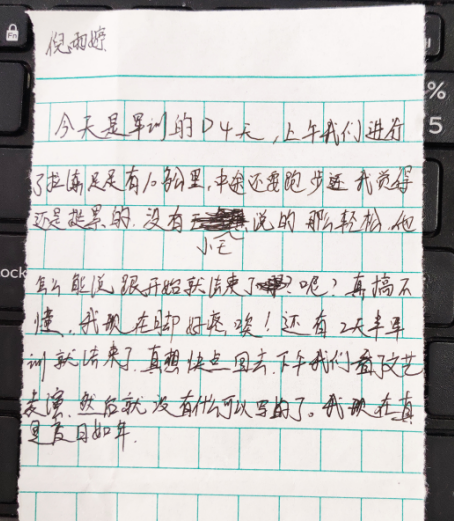 倪雨婷
今天是军训的D4天,上午我们进行
了拉练足足有10公里,中途还要跑步逐 我觉得
还是挺累的.没有小毛说的那么轻松,他
怎么能说跟开始就结束了呢?真搞不
懂,我现在脚好疼唉!还有2天半军
训就结束了.真想快点回去.下午我们看了文艺
表演.然后就没有什么可以写的了。我现在真
是度日如年.
%
5
Fn
ock